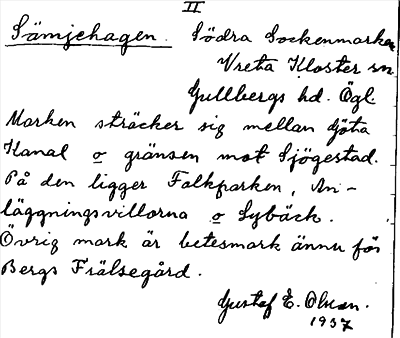 II
Sämjehagen. Södra Sockenmarken
Vreta Kloster sn
Gullbergs hd. Ögl.
Marken sträcker sig mellan Göta
Kanal o gränsen mot Sjögestad.
På den ligger Folkparken, An-
läggningsvillorna o Sybäck.
Övrig mark är betesmark ännu för
Bergs Frälsegård.
Gustaf E. Olsson.
1937